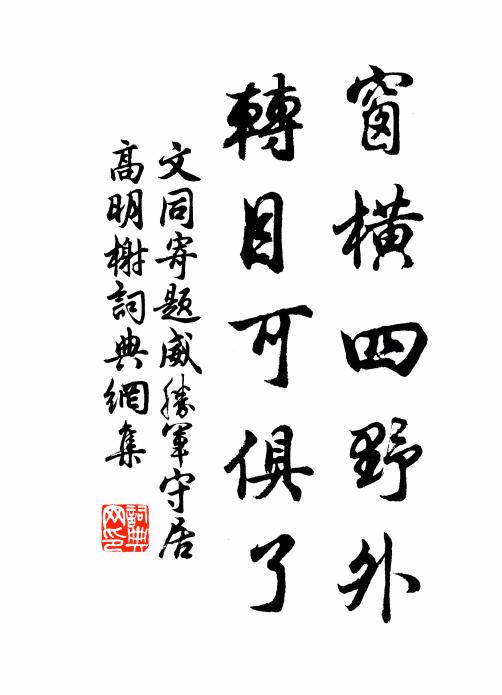 窗橫四野外
轉目可俱了
文同寄題威勝軍守居
高明榭詞典網集
詞典
网印